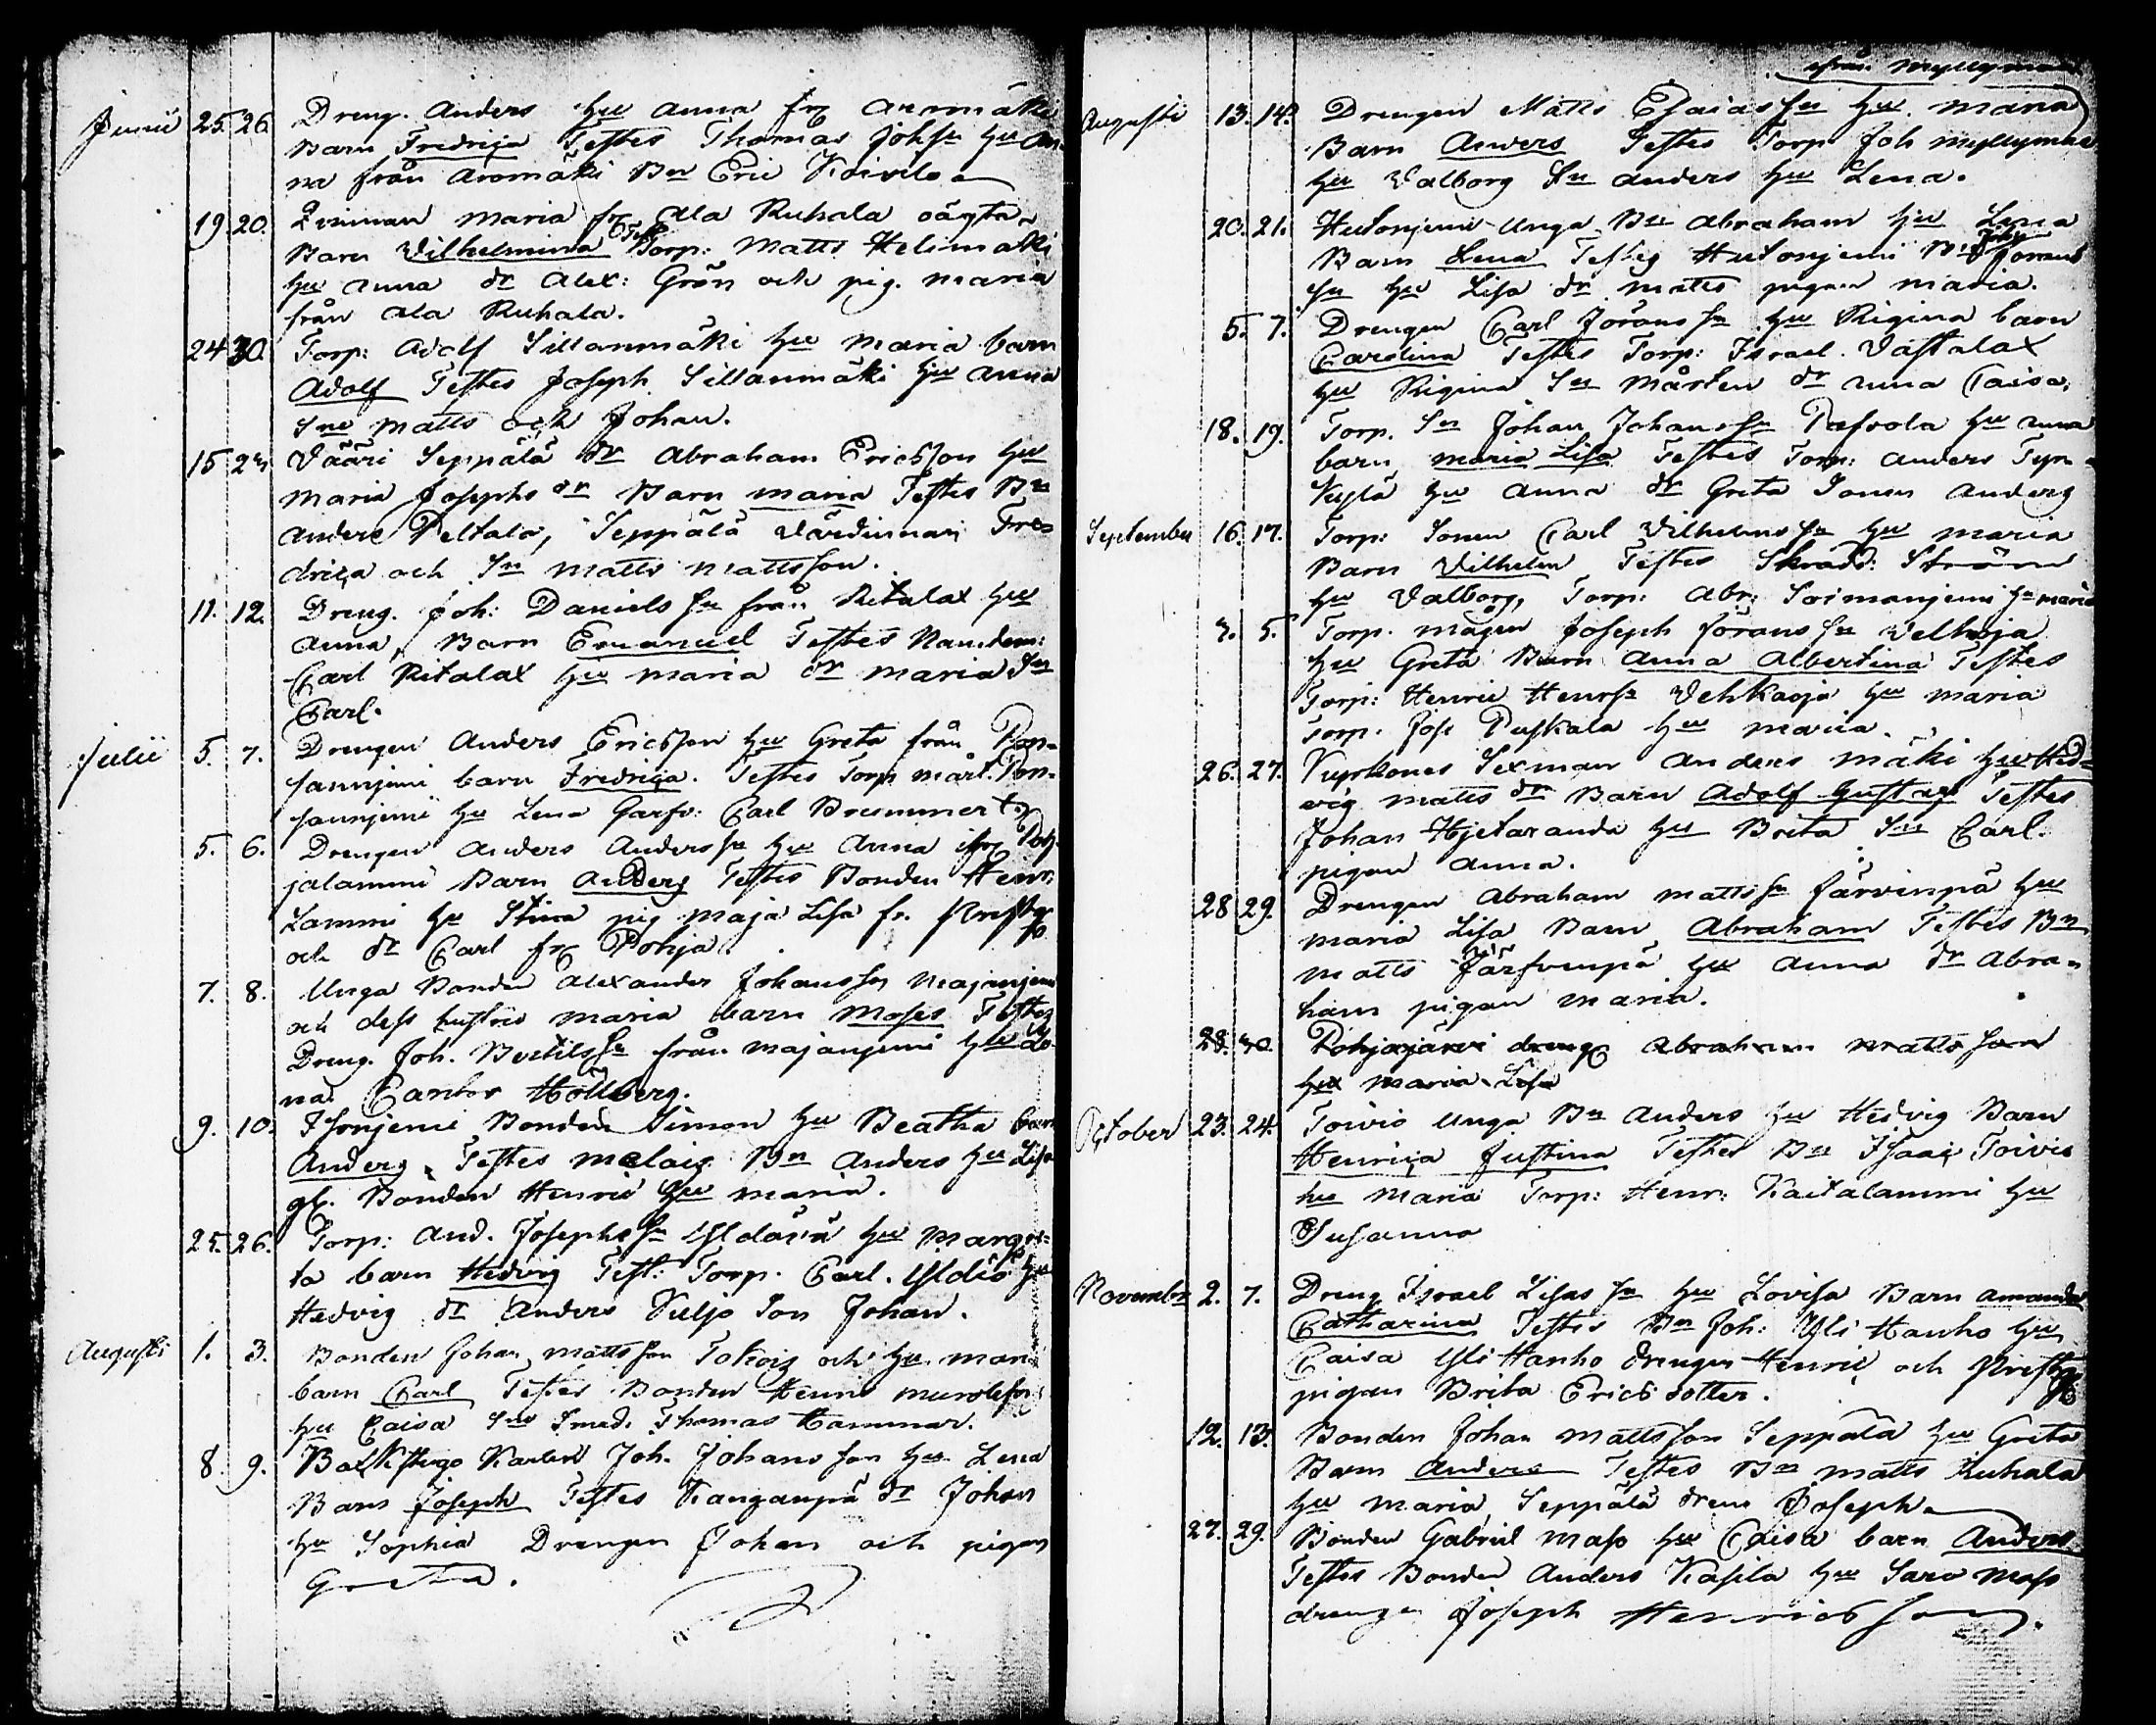 Junii 25. 26. Dreng. Anders hu Anna frå Aromäki
Barn Fredrica Testes Thomas Johss. hu An-
na från Aromäki Bn Eric Koivila
19. 20. Qvinnan Maria frå Ala Ruhala oägta
Barn Vilhelmina Test Torp: Matts Helimäki
hu Anna dr Alex: Grön och pig. Maria
från Ala Ruhala.
24 30. Torp: Adolf Sillanmäki hu Maria barn
Adolf Testes Joseph Sillanmäki hu Anna
Sne Matts och Johan.
15 Vääri Seppälä dr Abraham Ericsson hu
Maria Josephs dr Barn Maria Testes Bn
Anders Peltala, Seppälä Värdinnan Fre-
drica och Sn Matts Mattsson.
11. 12. Dreng. Joh: Daniels sn från Ritalax hu
Anna, Barn Emanuel Testes
Carl Ritalax hu Maria dr Maria Sn
Carl.
Julii 5. 7. Drengen Anders Ericsson hu Greta från Pon-
sannjemi barn Fredrica. Testes Torp Mårt. Pon-
sannjemi hu Lena Garfv: Carl Brummer
5. 6. Drengen Anders Anders sn hu Anna ifrå Poh-
jalammi Barn Anders Testes Bonden Henr:
Lammi hu Stina pig Maja Lisa fr. Prestg
och dr Carl frå Pohja.
7. 8. Unga Bonden Alexander Johanss Majanjemi
och dess hustru Maria barn Moses Testes
Dreng. Joh. Bertils sn från Majanjemi hu
na. Cantor Höllberg.
9. 10. Isonjemi Bonden Simon hu Beatha barn
Anders, Testes Bn Anders hu Lisa
gl. Bonden Henric hu Maria.
25. 26. Torp: And. Josephs sn hu Marga-
ta barn Hedvig Test: Torp. Carl. hu
Hedvig dr Anders Son Johan.
Augusti 1. 3. Bonden Johan Mattsson och hu
barn Carl Testes Bonden
hu Caisa Sne Smed. Thomas Hammar.
8. 9. Karlen Joh. Johansson hu Lena
Barn Joseph Testes Kanganpä dr Johan
hu Sophia Drengen Johan och pigan
Greta.
från Myllymaa
Augusti 13. 14. Drengen Matts Esaias sn hu Maria
Barn Anders Testes Torp Joh Myllymaa
hu Valborg Sn Anders hu Lena.
20. 21. Hutonjemi Unga Bn Abraham hu Lena
Barn Lena Testes Hutonjemi Bn Joh Jorans
sn hu Lisa dr Matts pigan Maria.
5. 7. Drengen Carl Jörans sn hu Rigina barn
Carolina Testes Torp: Israel. Vastalax
hu Rigina Sn Mårten dr Anna Caisa.
18. 19. Torp. Sn Johan Johans sn hu Anna
barn Maria Lisa Testes Torp: Anders
hu Anna dr Greta Sonen Anders
September 16. 17. Torp: Sonen Carl Vilhelms sn hu Maria
Barn Vilhelm Testes Skradd: Ström
hu Valborg, Torp: Abr: Soimanjemi hu Maria
5. Torp. Mågen Joseph Jörans sn
hu Greta Barn Anna Albertina Testes
Torp: Henric Henrs Vehkaoja hu Maria
Torp. Jos Puskala hu Maria.
26. 27. Sexman Anders Mäki hu Hed-
vig Matts dr Barn Adolf Gustaf Testes
Johan Hjetaranda hu Brita Sn Carl.
pigan Anna.
28 29. Drengen Abraham Matts sn Järvinpä hu
Maria Lisa Barn Abraham Testes Bn
Matts Järfvenpä hu Anna dr Abra-
ham pigan Maria.
28. 30. Pohjajärvi dreng Abraham Mattsson
hu Maria Lisa
October 23. 24. Toivio Unga Bn Anders hu Hedvig Barn
Henrica Justina Testes Bn Isaac Toivio
hu Maria Torp: Henr: Kaitalammi hu
Susanna
November 2. 7. Dreng Israel Lisas sn hu Lovisa Barn Amanda
Catharina Testes Bn Joh: Yli Hanho hu
Caisa Yli Hanho drengen Henric och Prestg
pigan Brita Ericsdotter.
12. 13. Bonden Johan Mattsson Seppälä hu Greta
Barn Anders Testes Bn Matts Ruhala
hu Maria, Seppälä dren Joseph
27. 29. Bonden Gabriel Mass hu Caisa barn Anders
Testes Bonden Anders Kasila hu Sara Mass
drengen Joseph Henricsson.